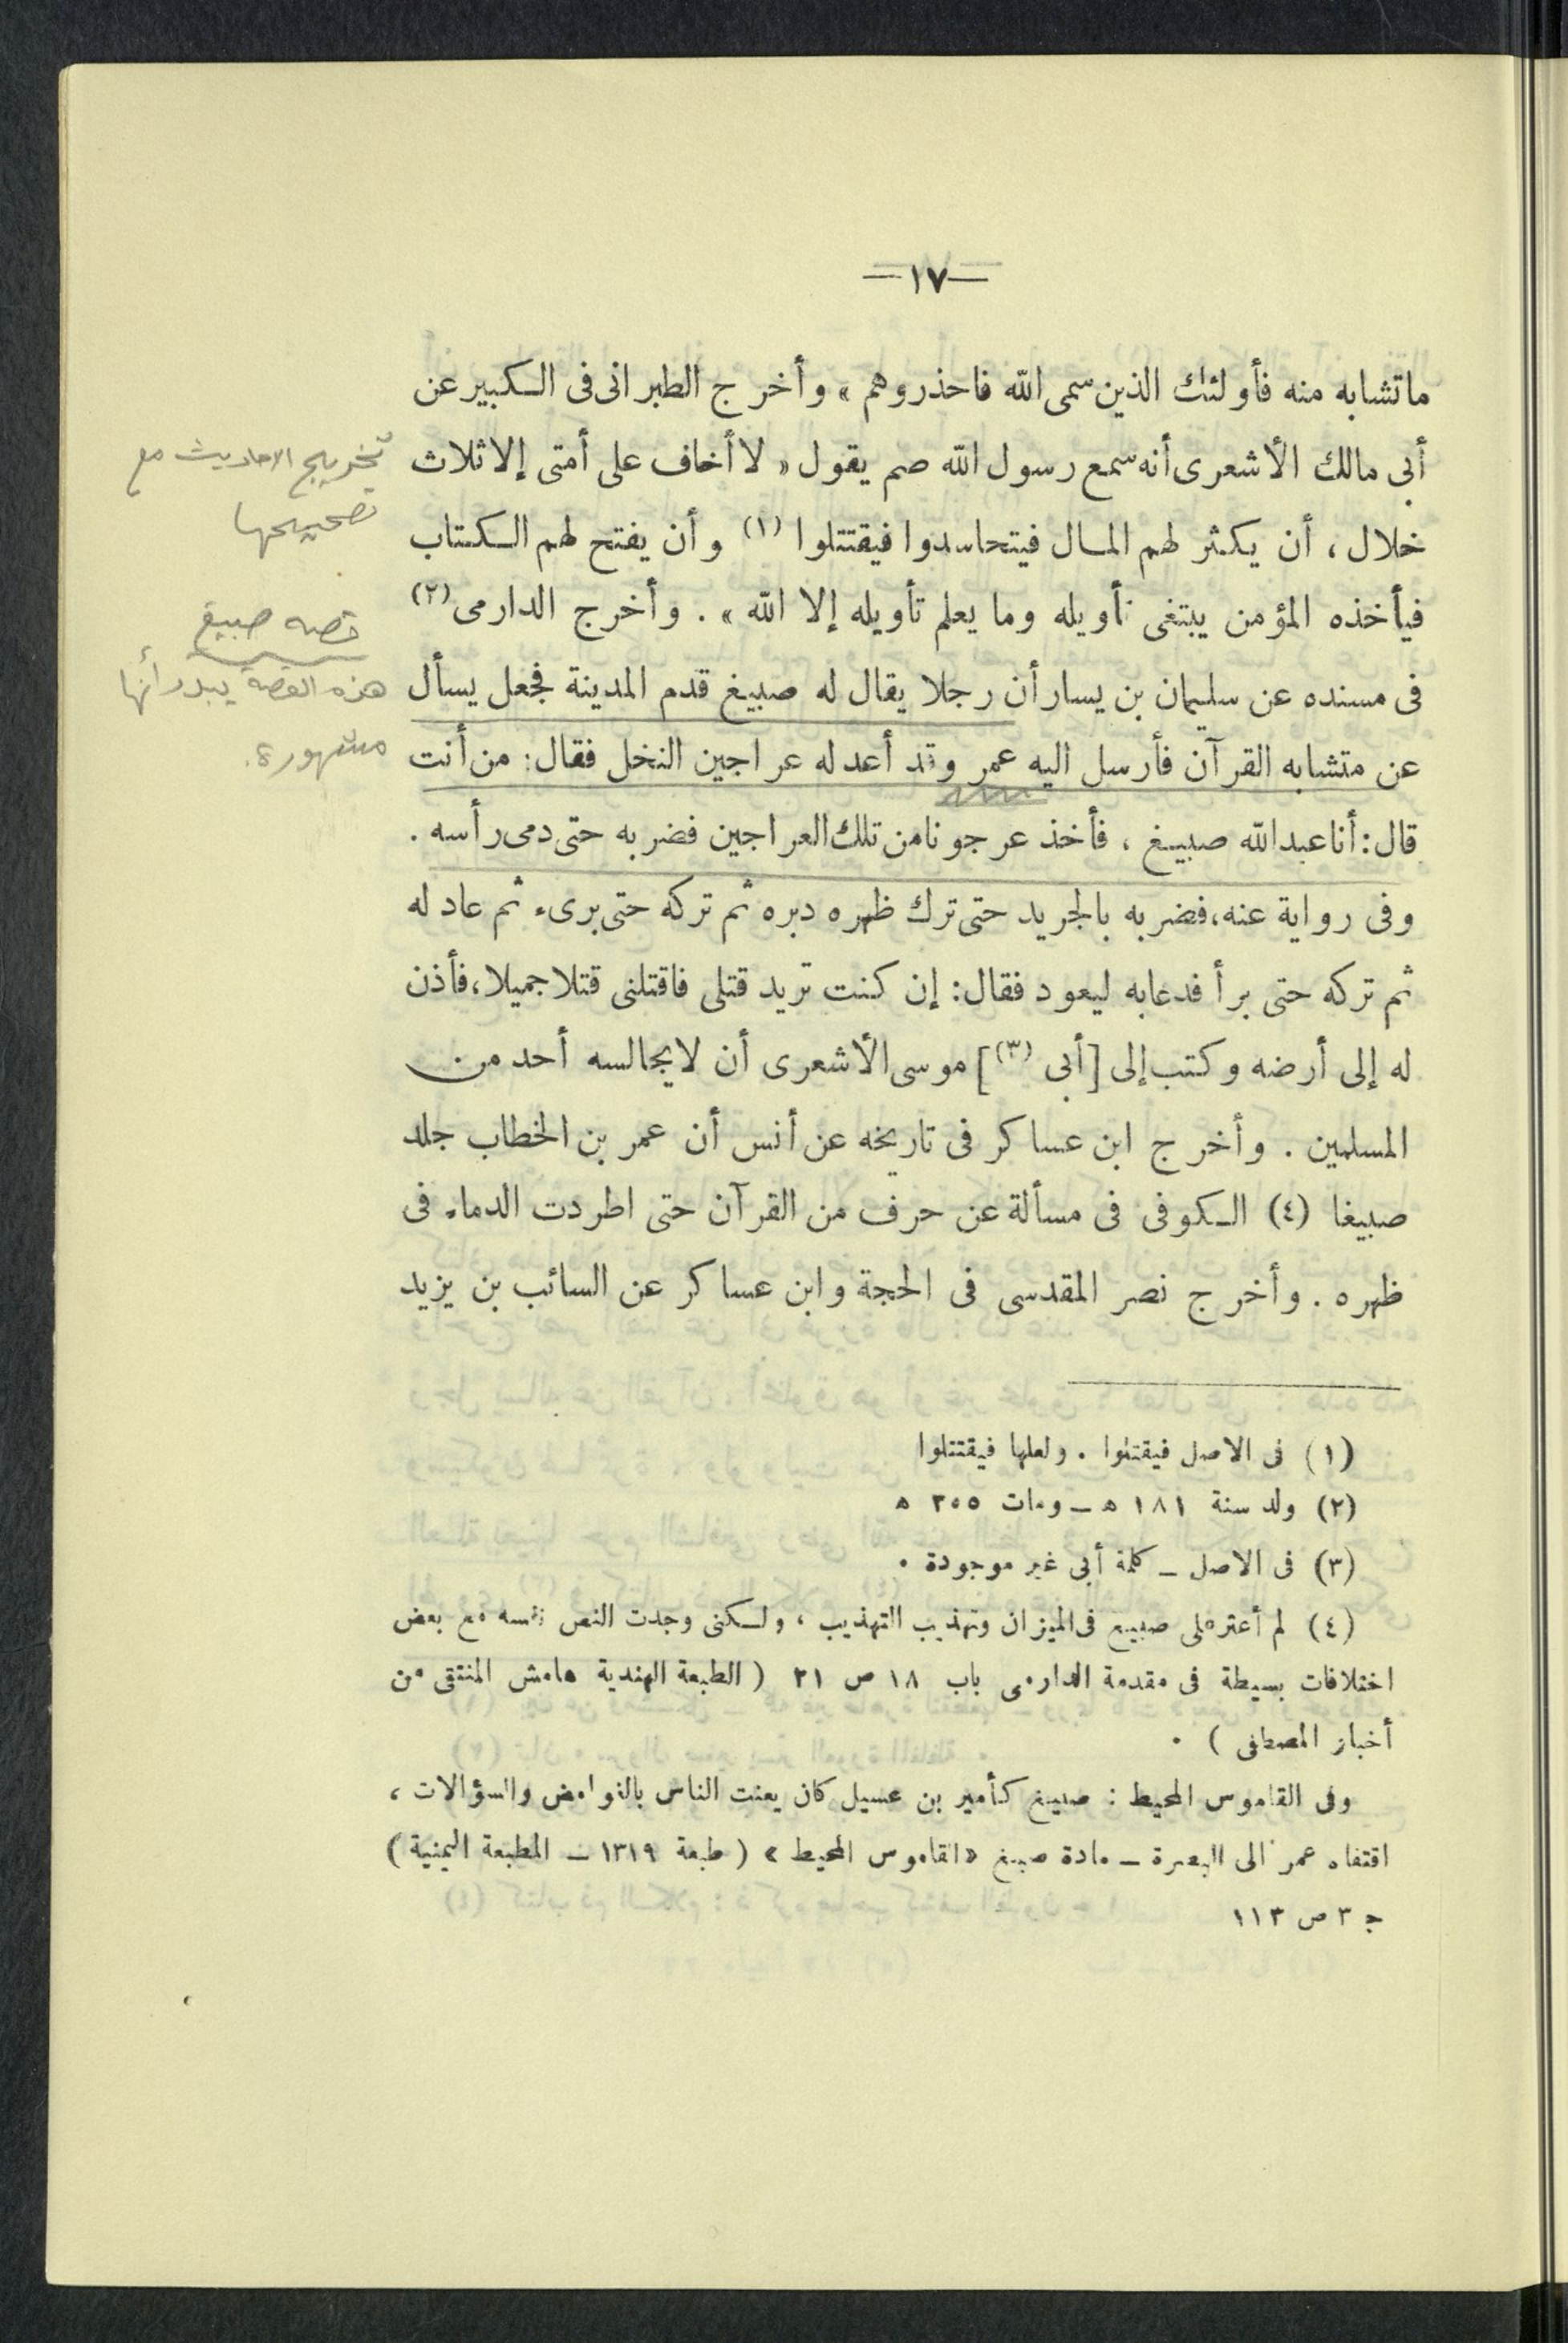 —١٧—
ما تشابه منه فأولئك الذين سمى الله فاحذروهم » وأخرج الطبرانى فى الكبير عن
أبى مالك الأشعرى أنه سمع رسول الله صم يقول « لا أخاف على أمتى إلا ثلاث
خلال ، أن يكثر لهم المال فيتحاسدوا فيقتتلوا (١) وأن يفتح لهم الكتاب
فيأخذه المؤمن يبتغى تأويله وما يعلم تأويله إلا الله » . وأخرج الدارمى (٢)
فى مسنده عن سليمان بن يسار أن رجلا يقال له صبيغ قدم المدينة فجعل يسأل
عن متشابه القرآن فأرسل اليه عمر وقد أعد له عراجين النخل فقال : من أنت
قال : أنا عبد الله صبيغ ، فأخذ عرجونا من تلك العراجين فضربه حتى دمى رأسه .
وفى رواية عنه، فضربه بالجريد حتى ترك ظهره دبره ثم تركه حتى برىء ثم عاد له
ثم تركه حتى برأ فدعا به ليعود فقال : إن كنت تريد قتلى فاقتلنى قتلا جميلا، فأذن
له إلى أرضه وكتب إلى [أبى (٣)] موسى الأشعرى أن لا يجالسه أحد من
المسلمين . وأخرج ابن عساكر فى تاريخه عن أنس أن عمر بن الخطاب جلد
صبيغا (٤) الكوفى فى مسألة عن حرف من القرآن حتى اطردت الدماء فى
ظهره . وأخرج نصر المقدسى فى الحجة وابن عساكر عن السائب بن يزيد
(١) فى الاصل فيقتلوا . ولعلها فيقتتلوا
(٢) ولد سنة ١٨١ ه – ومات ٢٥٥ ه
(٣) فى الاصل – كلمة أبى غير موجودة .
(٤) لم أعثر على صبيغ فى الميزان وتهذيب التهذيب ، ولكنى وجدت النص نفسه مع بعض
اختلافات بسيطة فى مقدمة الدارمى باب ١٨ ص ٣١ ( الطبعة الهندية هامش المنتقى من
أخبار المصطفى ) .
وفى القاموس المحيط : صبيغ كأمير بن عسيل كان يعنت الناس بالغوامض والسؤالات ،
اقتفاه عمر الى البصرة – مادة صبغ « القاموس المحيط » ( طبعة ١٣١٩ – المطبعة اليمنية )
ج ٣ ص ١١٣
تخريج الاحاديث مع
تصحيحها
قصه صبيغ
هذه القصة يبدو أنها
مشهورة.